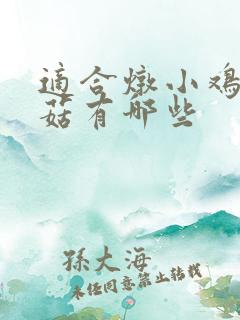 適合燉小鸡
菇有哪些
孫大海
未经同意禁止转载